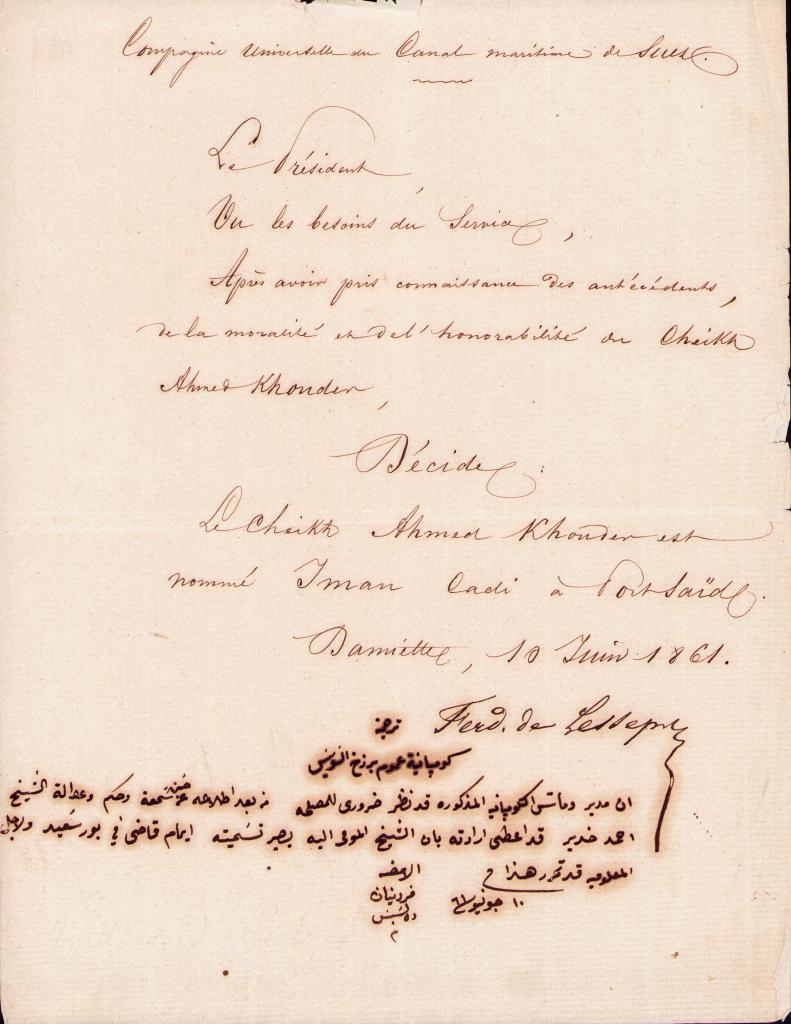 Compagnie Universelle du Canal maritime de Suez.
Le Président,
Vu les besoins du Service,
Après avoir pris connaissance des antécédents,
de la moralité et de l'honorabilité du Cheikh
Ahmed Khouder,
Décide :
Le Cheikh Ahmed Khouder est
nommé Iman Cadi à Port Saïd.
Damiette, 10 Juin 1861.
Ferd. de Lesseps
ترجمة
كومپانية عموم برزخ السويس
ان مدير الكومپانيه المذكوره قد نظر ضرورى للمصلحه من بعد اطلاعه سمعة وحكم وعدالة الشيخ
احمد خدير قد اعطى ارادته بان الشيخ المومى اليه يصير تسميته ايمام قاضى في بور سعيد ولاجل
المعلوميه قد تحرر هذا
الامضه
١٠ جونيو ٦١
فردنيان
دلسبس